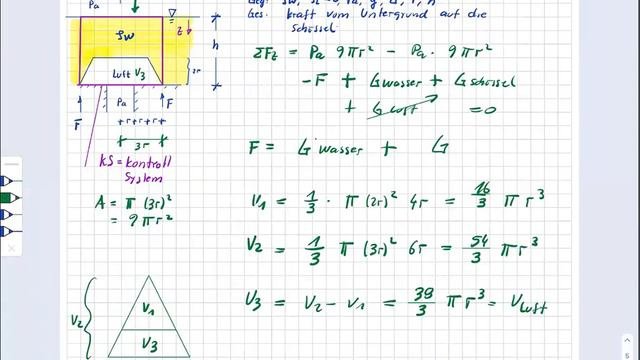 Pa
Ges: Kraft vom Untergrund auf die
Schüssel
SW
z
h
Luft V3
2r
Pa
F
F
r r r r
3r
KS = Kontroll
System
A = π (3r)²
= 9πr²
ΣFz = Pa 9πr² - Pa · 9πr²
- F + G wasser + G schüssel
+ G Luft = 0
F = G wasser + G
V1 = 1/3 · π (2r)² 4r = 16/3 π r³
V2 = 1/3 π (3r)² 6r = 54/3 π r³
V3 = V2 - V1 = 38/3 π r³ = V Luft
V2
V1
V3